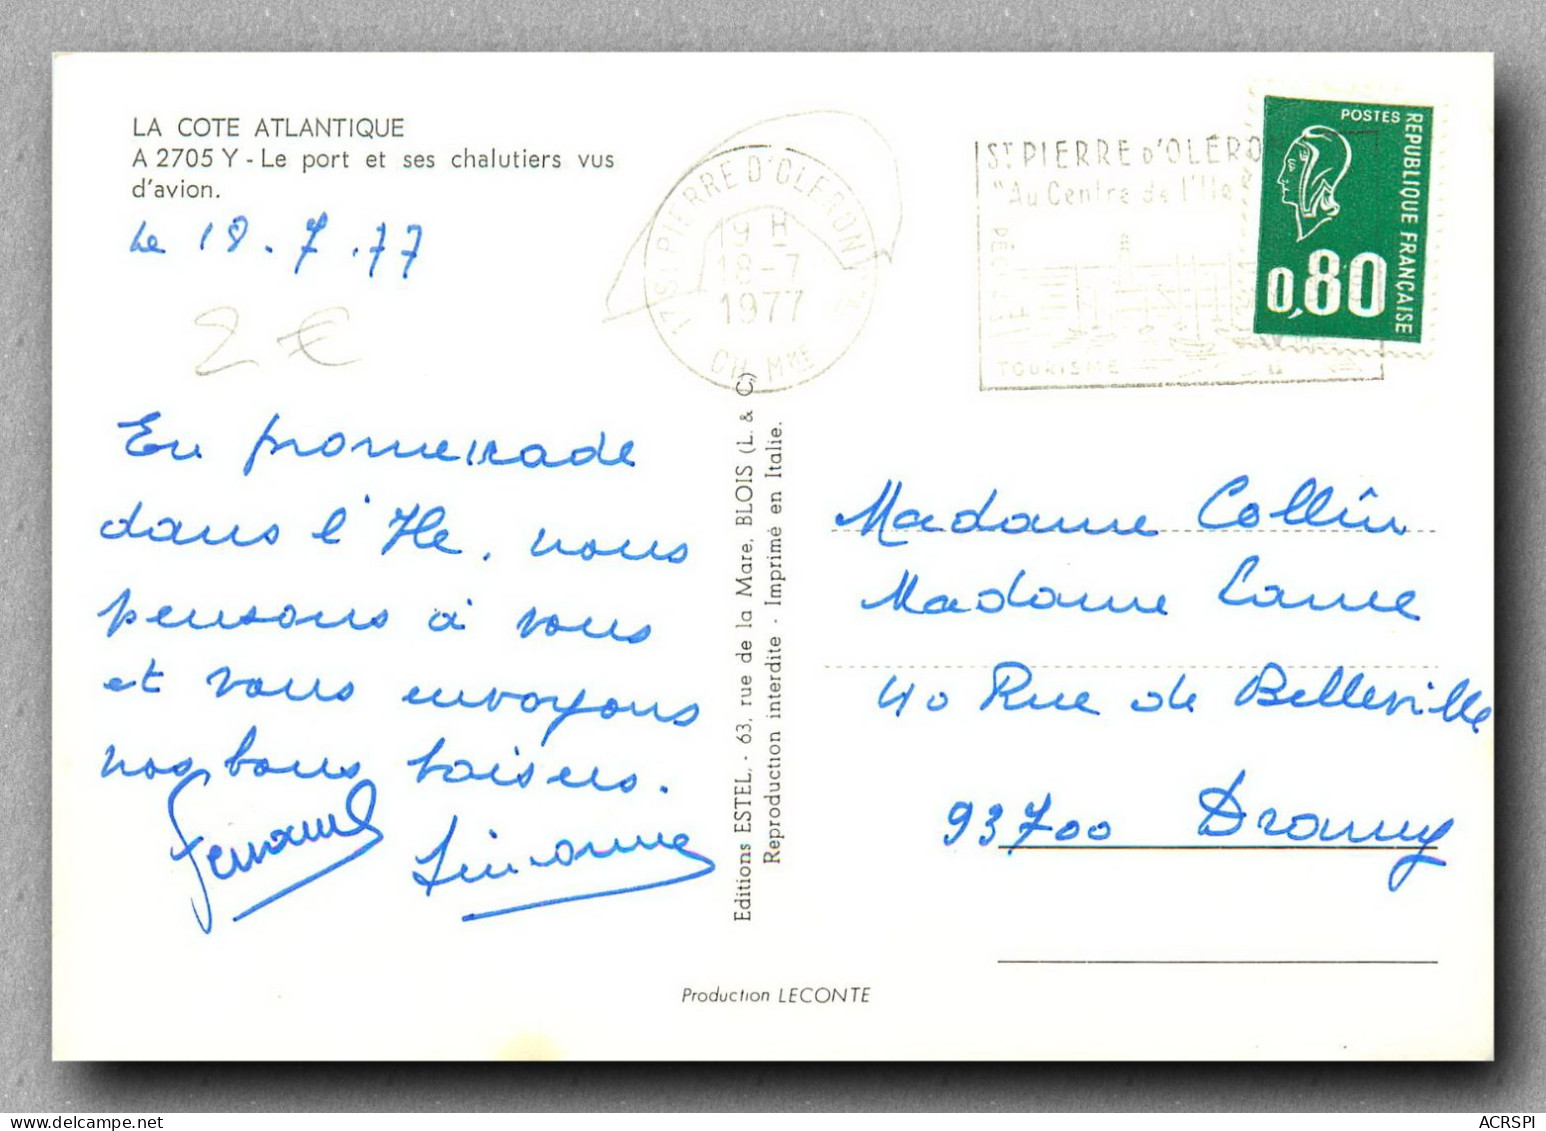 LA COTE ATLANTIQUE
A 2705 Y - Le port et ses chalutiers vus
d'avion.
Le 18.7.77
2 €
En promenade
dans l'Ile, nous
pensons à vous
et vous envoyons
nos bons baisers.
Fernand
Simonne
17 ST PIERRE D'OLERON
19 H
18-7
1977
CH-MME
ST PIERRE D'OLERO
"Au Centre de l'Ile
TOURISME
POSTES
REPUBLIQUE FRANÇAISE
0,80
Editions ESTEL. - 63, rue de la Mare, BLOIS (L. & C.)
Reproduction interdite - Imprimé en Italie.
Madame Collin
Madame
40 Rue de Belleville
93700 Drancy
Production LECONTE
ACRSPI